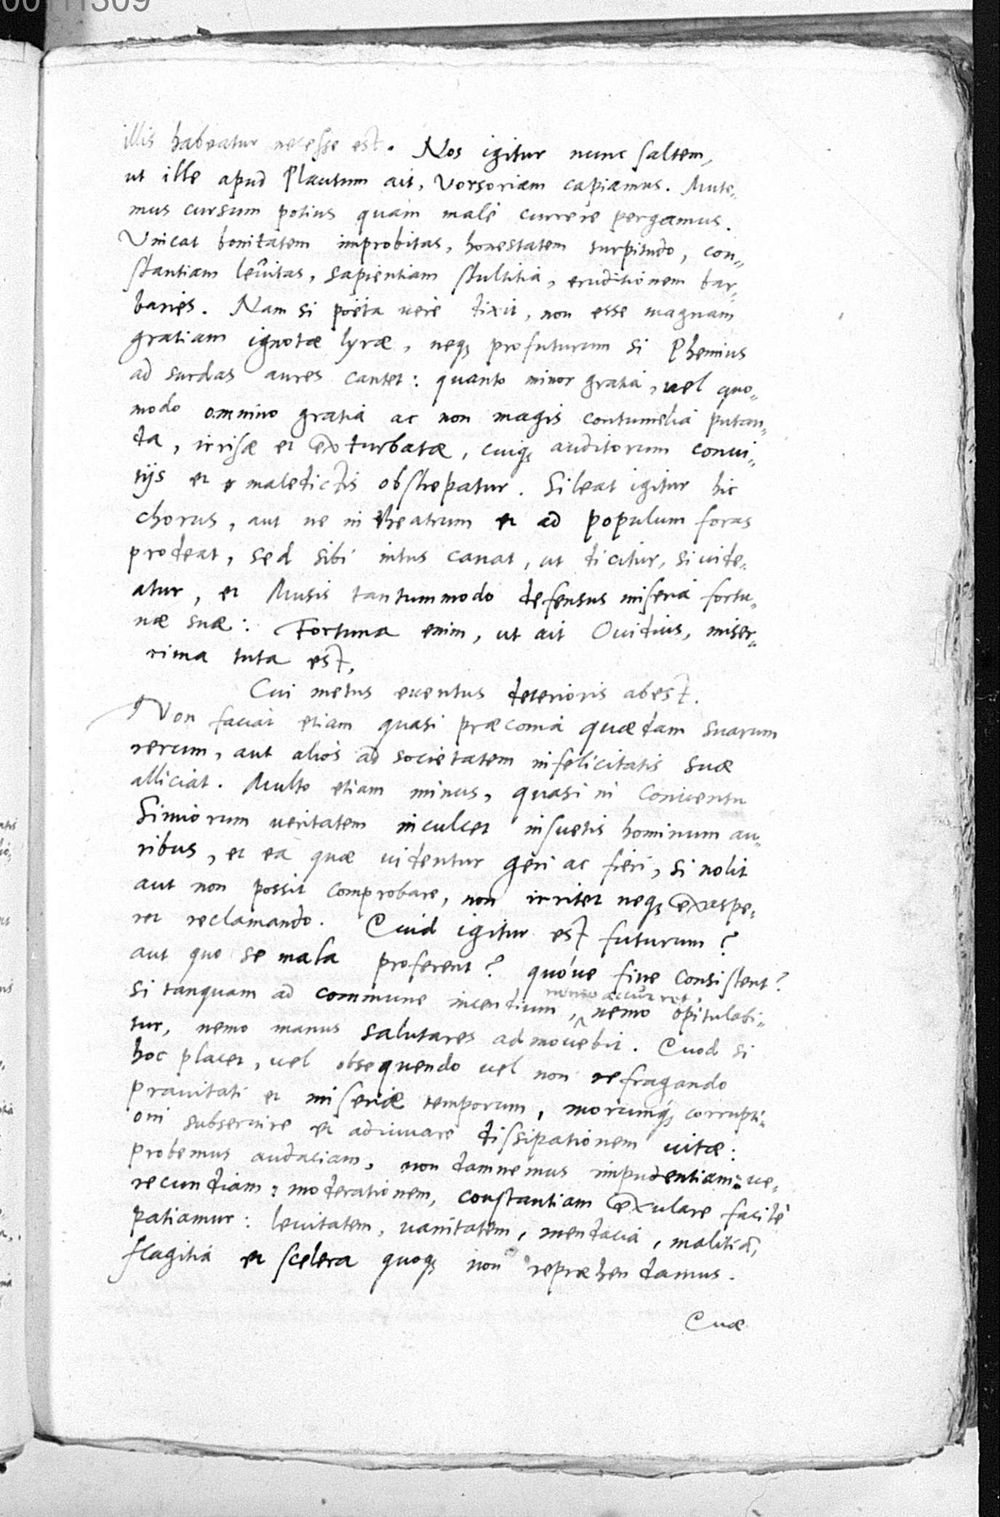 illis habeatur necesse est. Nos igitur nunc saltem,
ut ille apud Plautum ait, Vorsoriam capiamus. Mute-
mus cursum potius quam malè currere pergamus.
Vincat bonitatem improbitas, honestatem turpitudo, con-
stantiam levitas, sapientiam stultitia, eruditionem bar-
baries. Nam si poëta verè dixit, non esse magnam
gratiam ignotæ lyræ, neq; profuturum si Phemius
ad surdas aures cantet: quanto minor gratia, vel quo-
modo omnino gratia ac non magis contumelia putan-
da, irrisæ et exturbatæ, cuiq; auditorum convi-
tijs et maledictis obstrepatur. Sileat igitur hic
chorus, aut ne in theatrum et ad populum foras
prodeat, sed sibi intus canat, ut dicitur, si vide-
atur, et Musis tantummodo defensus miseria fortu-
næ suæ: Fortuna enim, ut ait Ovidius, miser-
rima tuta est,
Cui metus eventus deterioris abest.
Non faciat etiam quasi præconia quædam suarum
rerum, aut alios ad societatem infelicitatis suæ
alliciat. Multo etiam minus, quasi in conventu
Simiorum veritatem inculcet insuetis hominum au-
ribus, et ea quæ videntur geri ac fieri, si nolit
aut non possit comprobare, non irritet neq; exaspe-
ret reclamando. Quid igitur est futurum?
aut quo se mala proferent? quóve fine consistent?
nemo accurret,
si tanquam ad commune incendium, nemo opitulabi-
tur, nemo manus salutares admovebit. Quod si
hoc placet, vel obsequendo vel non refragando
pravitati et miseriæ temporum, morumq; corrupti-
oni subservire et adiuvare dissipationem vitæ:
probemus audaciam, non damnemus impudentiam: ve-
recundiam, moderationem, constantiam exulare facilè
patiamur: levitatem, vanitatem, mendacia, malitiam,
flagitia et scelera quoq; non repræhendamus.
Quæ